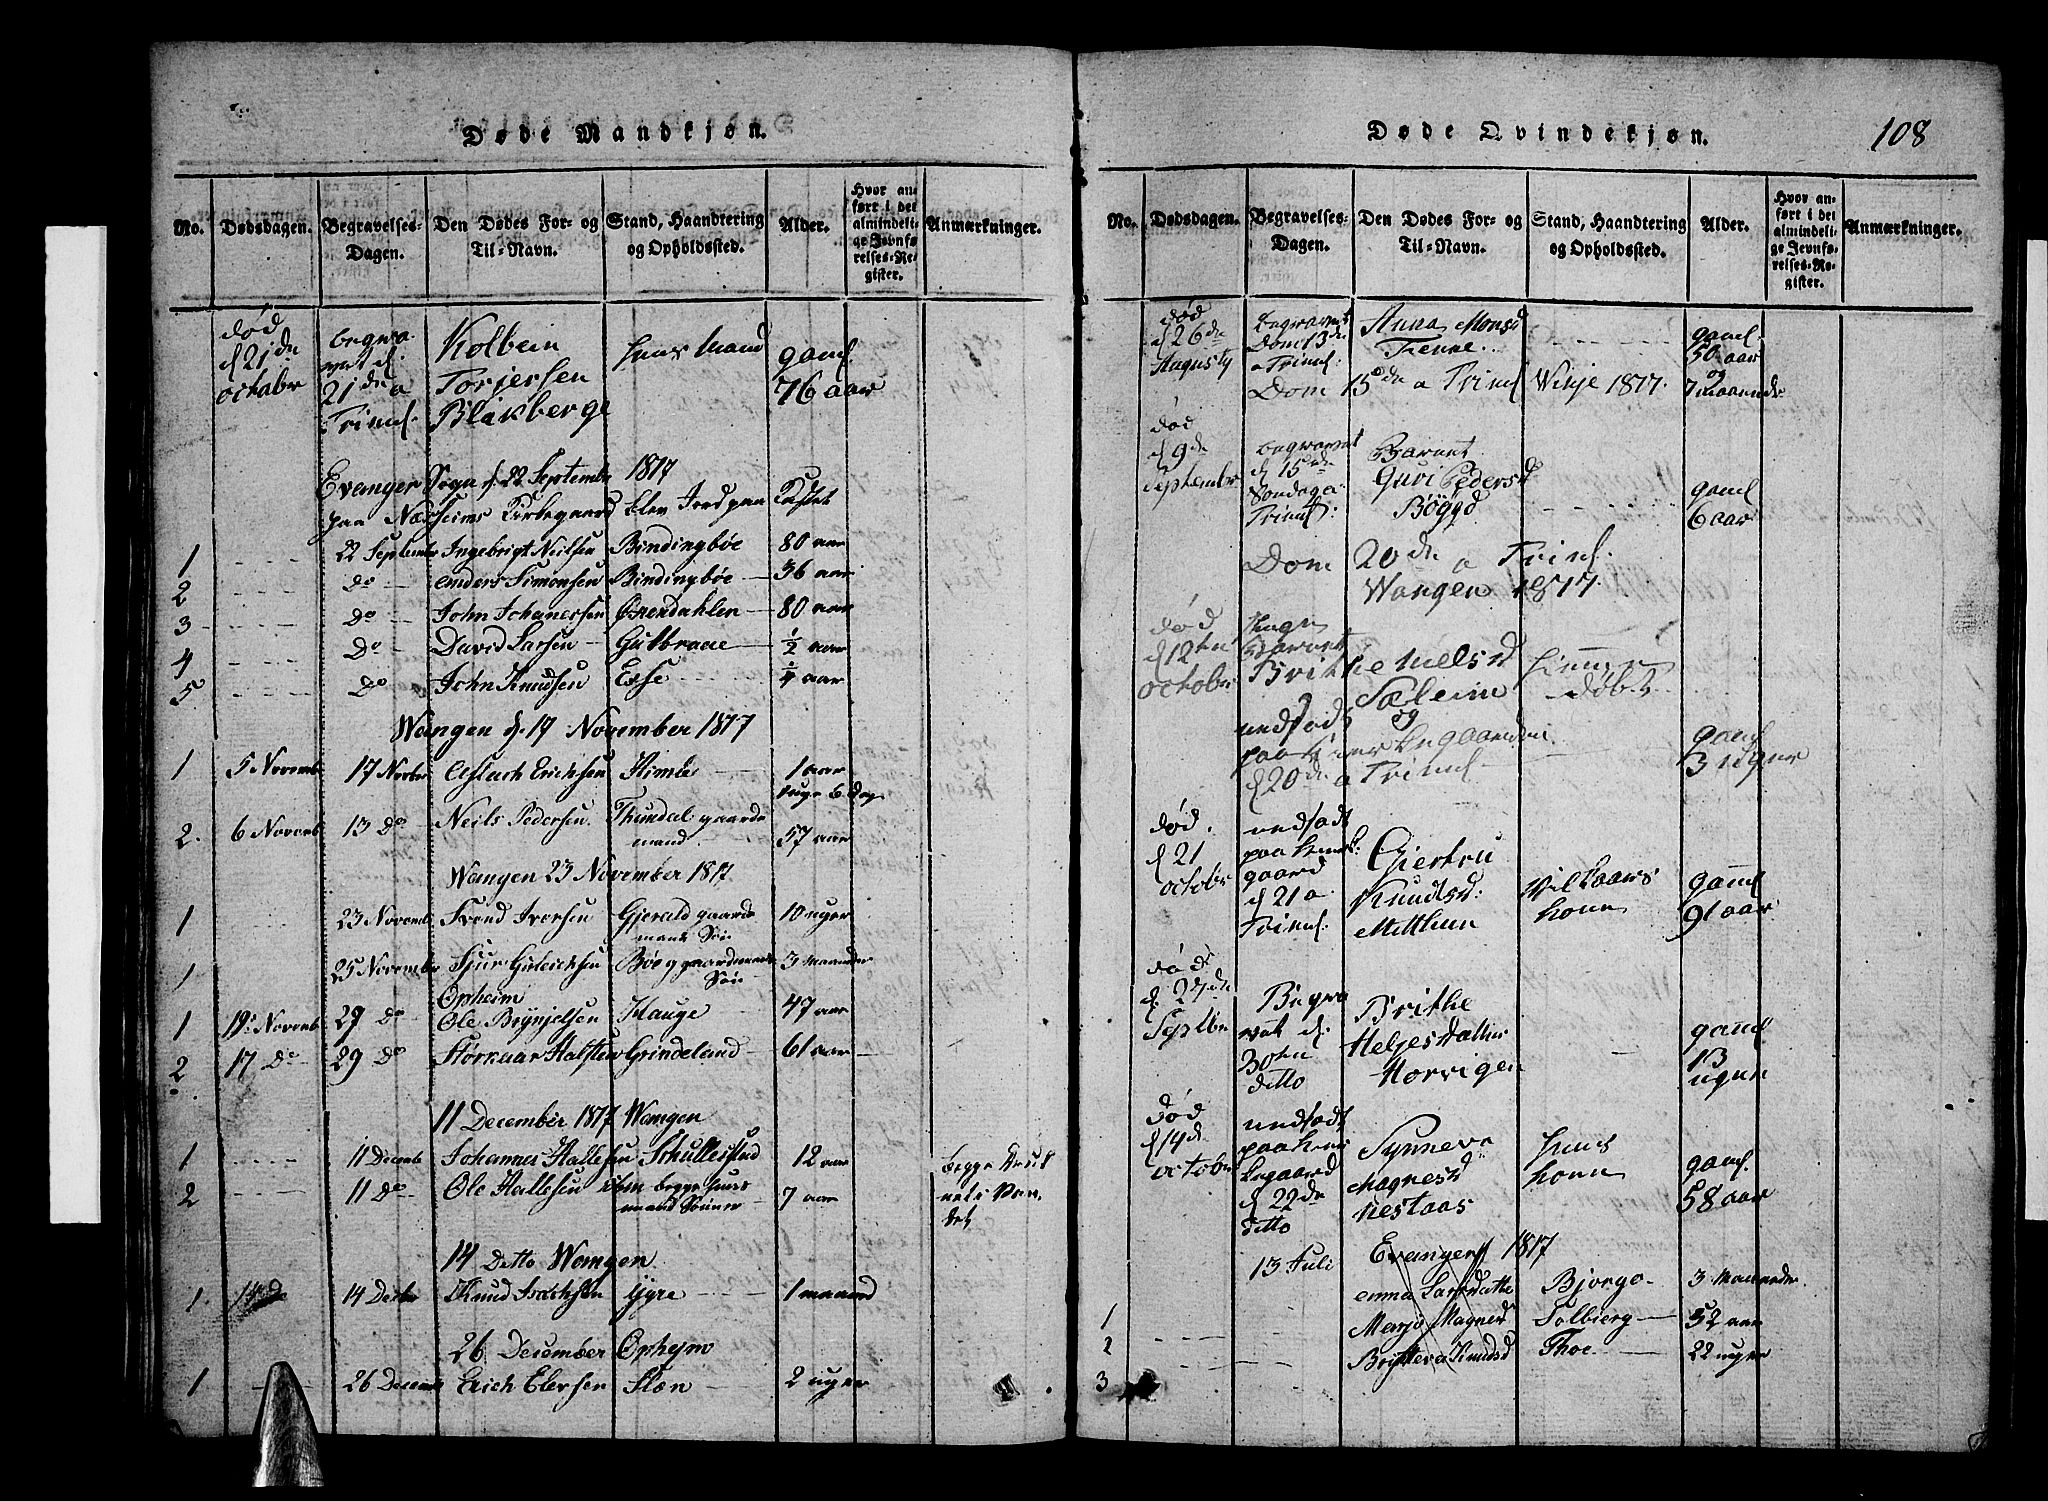 Døde Mandkjøn.
No. Dødsdagen. Begravelses-Dagen. Den Dødes For- og Til-Navn. Stand, Haandtering og Opholdssted. Alder. Hvor anført i det almindelige Jevnførelses-Register. Anmærkninger.
død d 21de octobr begravet d. 21de a Trinit. Kolbein Torjersen Blikberge huus Mand gaml 76 aar
Evanger Sogn d. 22 Septembr 1817
paa Kirkegaard blev Jord paa Kastet
1 22 Septembr Ingebrigt Neilsen Bindingbøe 80 aar
2 Do Anders Simonsen Bindingbøe 36 aar
3 Do John Johanesen 80 aar
4 Do David Larsen Gulbraae 1/2 aar
5 Do John Knudsen Exse 1/4 aar
Wangen d. 17 November 1817
1 5 Novemb 17 Novbr Aslach Erichsen Himle 1 aar
uge 6 dag
2. 6 Novemb 13 Do Neils Pedersen gaard mand 57 aar
Wangen 23 November 1817
1 23 Novemb Svend Iversen Gjerald gaard mands Søn 10 uger
1 25 Novembr Sjur Bøe gaardmands Søn 3 Maander
Opheim
1 19 Novemb 29 Do Ole Brynjelsen Hauge 47 aar
2 17 Do 29 Do Størkaar Halsten Grindeland 61 aar
11 December 1817 Wangen
1 11 Decemb Johannes Hallesen Schullestad 12 aar begge
2 11 Do Ole Hallesen ibm begge huus mand Sønner 7 aar
14 Detto Wangen
1. 14 Decbr Knud Isachsen Ygre 1 maaned
26 December Ophejm
1 26 Decemb Erich Elersen Slæn 2 uger
Døde Qvindekjøn. 108
No. Dødsdagen. Begravelses-Dagen. Den Dødes For- og Til-Navn. Stand, Haandtering og Opholdssted. Alder. Hvor anført i det almindelige Jevnførelses-Register. Anmærkninger.
død d 26de Augusty begravet Dom 13de a Trinit. Anna Monsd gaml 50 aar og 7 maander
Dom 15de a Trinit Winje 1817
død d 9de Septembr begravet d 15de Søndag a Trinit: Barnet Guri Pedersd Bøygd gaml 6 aar
Dom 20de a Trinit
Wangen 1817
død d 12ten octobr Barnet Brithe Nielsd Sæleim og hiemme døbt
paa d 20de a Trinit gaml 3 uger
død d 21 octobr paa gaard d 21 a Trinit. Gjertru Knudtsd: Mitthun Vilkaars kone gaml 91 aar
død d. 27de Septbr Begravet d. 30ten ditto Brithe Heljesdatter Horvigen gaml 13 uger
død d 14de octobr paa d 22de ditto Synneva Magnesd Nestaas huus kone gaml 58 aar
13 Juli Evanger 1817
Anna Larsdatter Bjørgo 3 Maaneder
1 Marjo Magnesd Solbierg 52 aar
2 Britteva Knudsd Thoe 22 uger
3